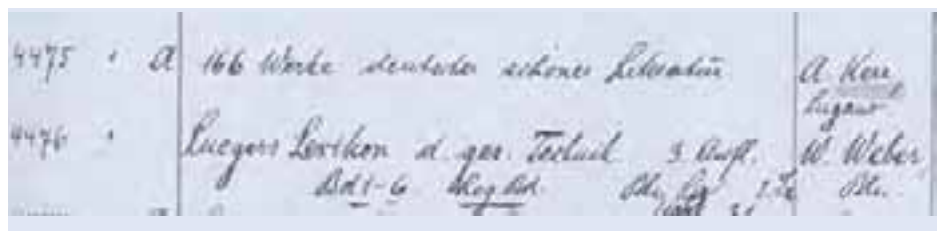 4475 " A 166 Werke deutscher schöner Literatur A Kerr
Lugano
4476 " Luegers Lexikon d. ges. Technik 3 Aufl. W. Weber,
Bd 1-6 Reg Bd. Bln.